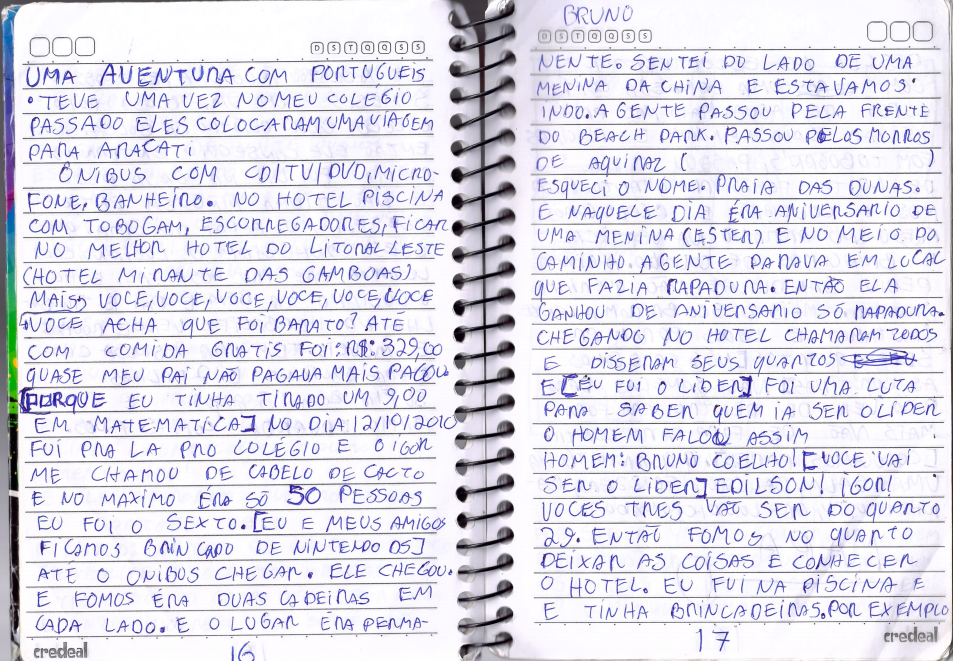 D S T Q Q S S
UMA AVENTURA COM PORTUGUEIS
• TEVE UMA VEZ NO MEU COLÉGIO
PASSADO ELES COLOCARAM UMA VIAGEM
PARA ARACATI
ÔNIBUS COM CD/TV/DVD, MICRO-
FONE, BANHEIRO. NO HOTEL PISCINA
COM TOBOGAM, ESCORREGADORES, FICAR
NO MELHOR HOTEL DO LITORAL LESTE
(HOTEL MIRANTE DAS GAMBOAS)
MAISS VOCE, VOCE, VOCE, VOCE, VOCE, VOCE
VOCE ACHA QUE FOI BARATO? ATÉ
COM COMIDA GRATIS FOI: R$: 329,00
QUASE MEU PAI NÃO PAGAVA MAIS PAGOU
[PORQUE EU TINHA TIRADO UM 9,00
EM MATEMATICA] NO DIA 12/10/2010
FUI PRA LA PRO COLÉGIO E O IGOR
ME CHAMOU DE CABELO DE CACTO
E NO MAXIMO ERA SÓ 50 PESSOAS
EU FOI O SEXTO. [EU E MEUS AMIGOS
FICAMOS BRINCADO DE NINTENDO DS]
ATÉ O ONIBUS CHEGAR. ELE CHEGOU.
E FOMOS ÉRA DUAS CADEIRAS EM
CADA LADO. E O LUGAR ÉRA PERMA-
credeal
16
BRUNO
D S T Q Q S S
NENTE. SENTEI DO LADO DE UMA
MENINA DA CHINA E ESTAVAMOS
INDO. A GENTE PASSOU PELA FRENTE
DO BEACH PARK. PASSOU PELOS MORROS
DE AQUIRAZ ( )
ESQUECI O NOME. PRAIA DAS DUNAS.
E NAQUELE DIA ÉRA ANIVERSARIO DE
UMA MENINA (ESTER) E NO MEIO DO
CAMINHO. A GENTE PARAVA EM LOCAL
QUE FAZIA RAPADURA. ENTÃO ELA
GANHOU DE ANIVERSARIO SÓ RAPADURA.
CHEGANDO NO HOTEL CHAMARAM TODOS
E DISSERAM SEUS QUARTOS
E [EU FUI O LIDER] FOI UMA LUTA
PARA SABER QUEM IA SER O LIDER
O HOMEM FALOU ASSIM
HOMEM: BRUNO COELHO! [VOCE VAI
SER O LIDER] EDILSON! IGOR!
VOCES TRES VÃO SER DO QUARTO
29. ENTÃO FOMOS NO QUARTO
DEIXAR AS COISAS E CONHECER
O HOTEL. EU FUI NA PISCINA E
E TINHA BRINCADEIRAS. POR EXEMPLO
17
credeal